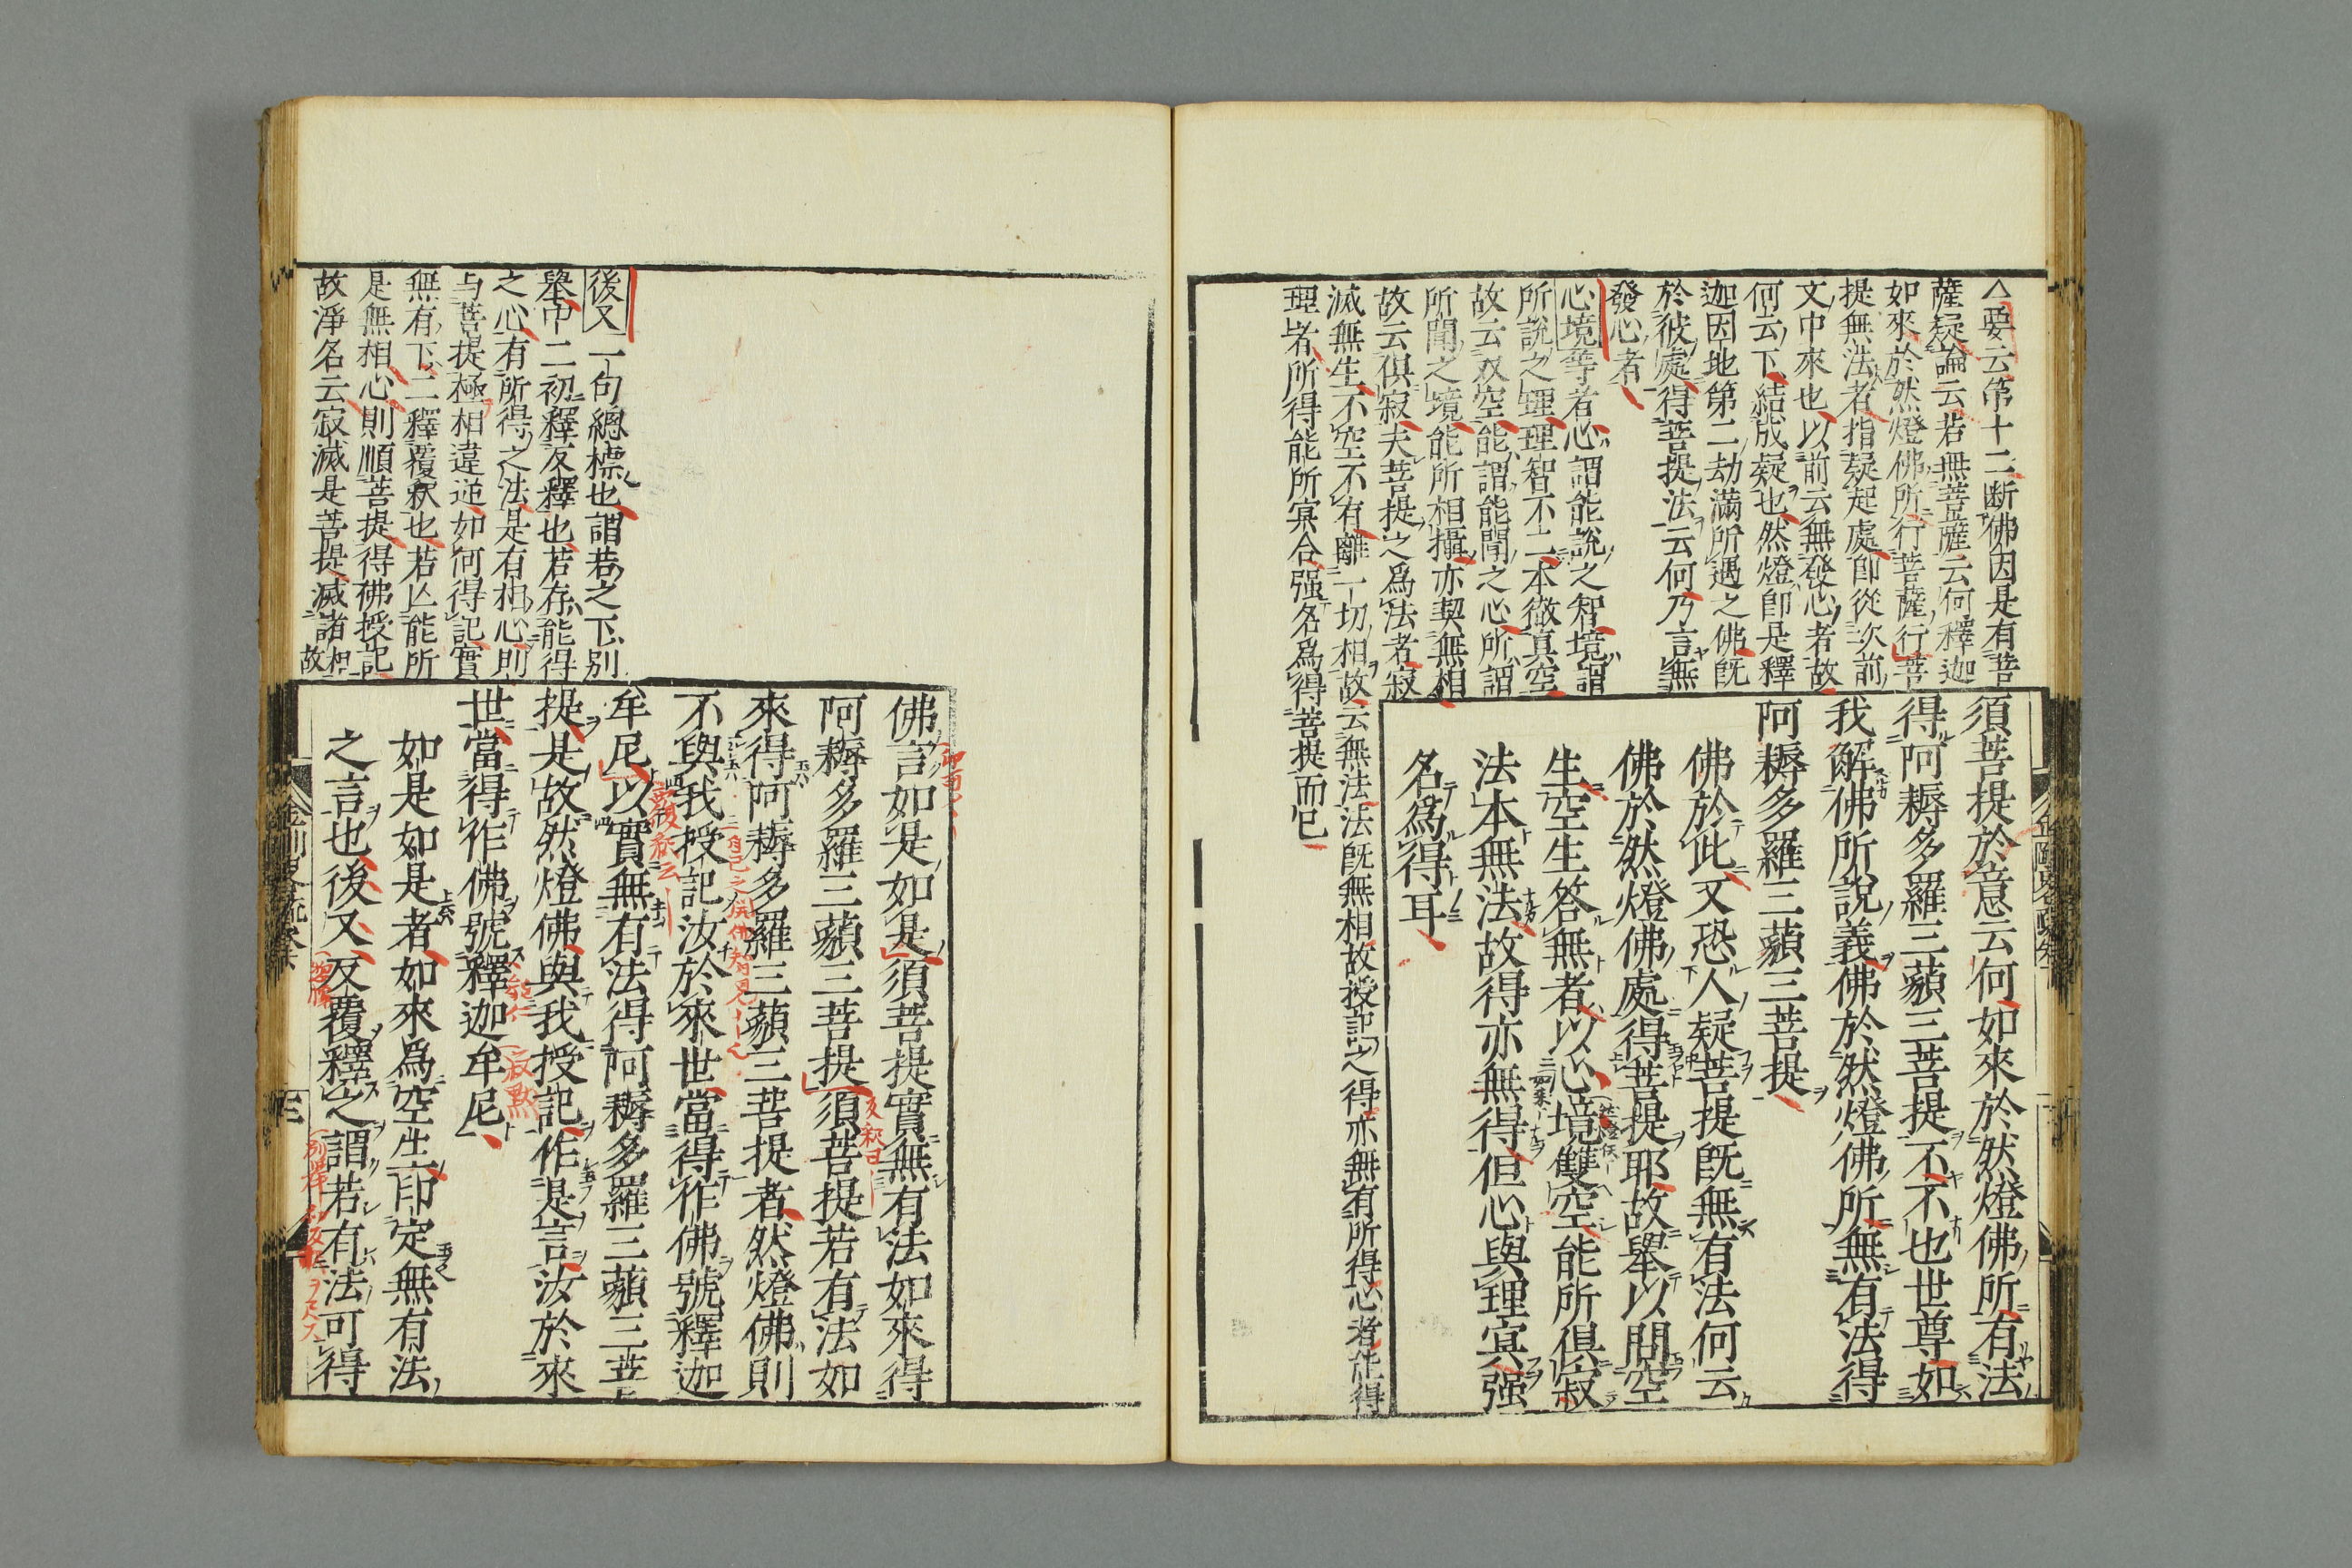 △要云第十二断佛因是有菩
薩疑論云若無菩薩云何釋迦
如來於然燈佛所行菩薩行菩
提無法者指疑起處即從次前
文中來也以前云無發心者故
何云下結成疑也然燈即是釋
迦因地第二劫滿所遇之佛既
於彼處得菩提法云何乃言無
發心者
心境等者心謂能說之智境謂
所說之理理智不二本徹真空
故云双空能謂能聞之心所謂
所聞之境能所相攝亦契無相
故云俱寂夫菩提之爲法者寂
滅無生不空不有離一切相故云無法法既無相故授記之得亦無有所得心者能得
理者所得能所冥合强名爲得菩提而已
須菩提於意云何如來於然燈佛所有法
得阿耨多羅三藐三菩提不不也世尊如
我解佛所說義佛於然燈佛所無有法得
阿耨多羅三藐三菩提
佛於此又恐人疑菩提既無有法何云
佛於然燈佛處得菩提耶故舉以問空
生空生答無者以心境雙空能所俱寂
法本無法故得亦無得但心與理冥强
名爲得耳
後又一句總標也謂若之下別
舉中二初釋反釋也若存能得
之心有所得之法是有相心則
与菩提極相違逆如何得記實
無有下二釋覆釈也若亡能所
是無相心則順菩提得佛授記
故淨名云寂滅是菩提滅諸相故
佛言如是如是須菩提實無有法如來得
阿耨多羅三藐三菩提須菩提若有法如
來得阿耨多羅三藐三菩提者然燈佛則
不與我授記汝於來世當得作佛號釋迦
牟尼以實無有法得阿耨多羅三藐三菩
提是故然燈佛與我授記作是言汝於來
世當得作佛號釋迦牟尼
如是如是者如來爲空生印定無有法
之言也後又反覆釋之謂若有法可得